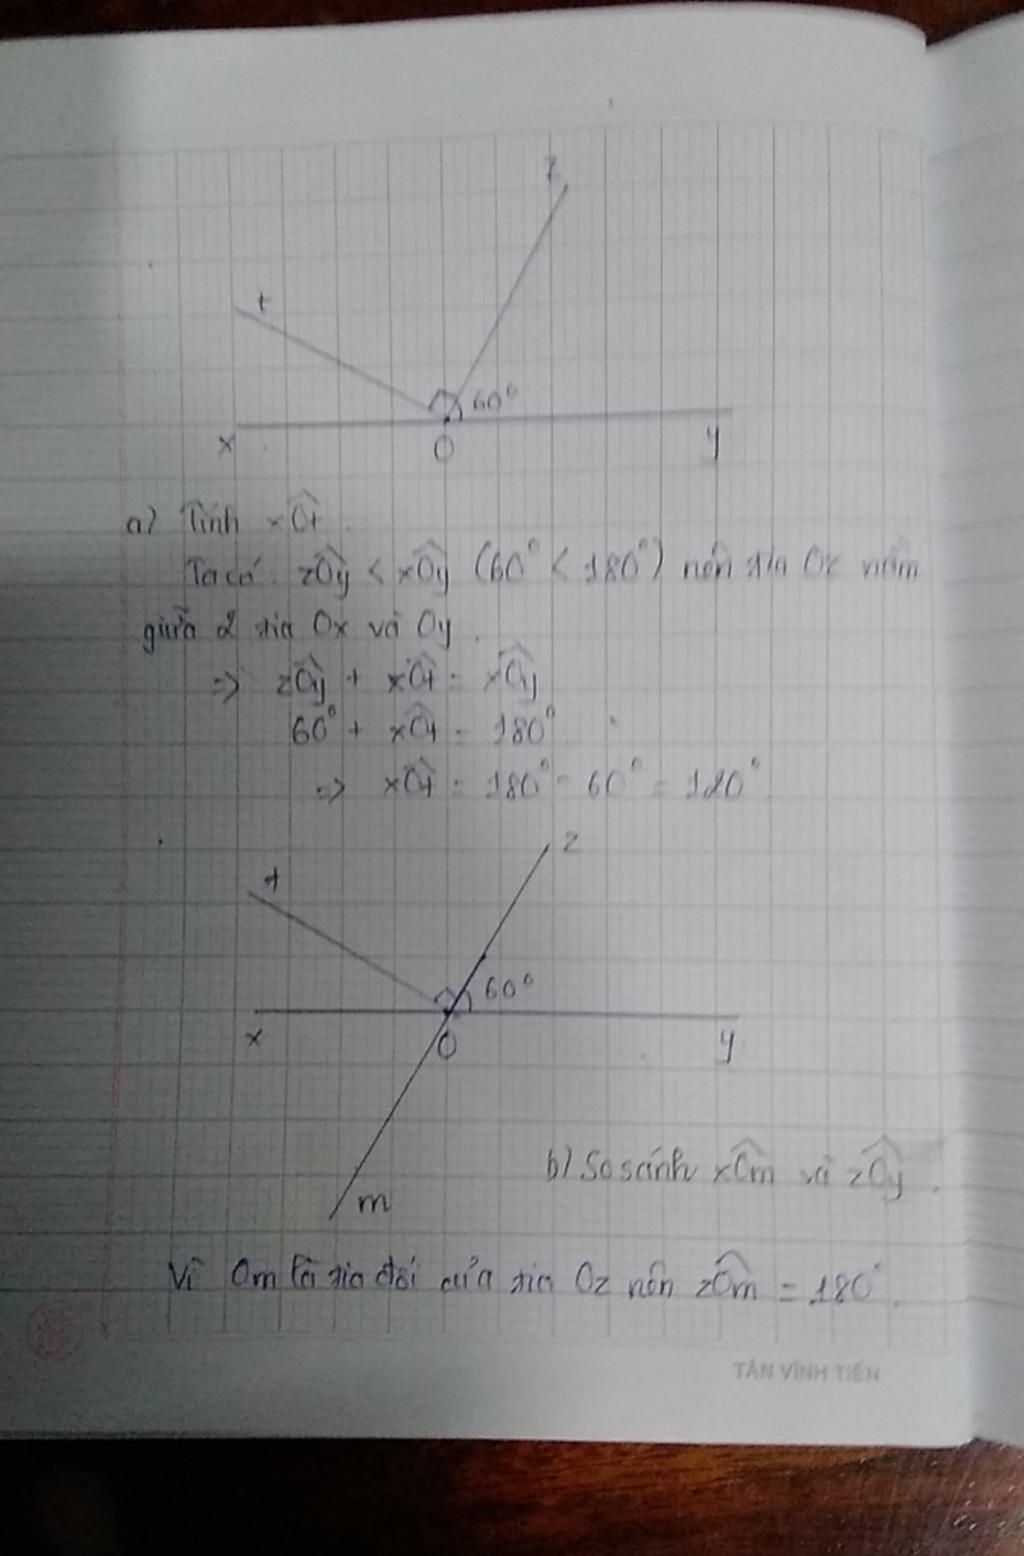 z
t
60°
x
O
y
a) Tính xÔt.
Ta có: zÔy < xÔy (60° < 180°) nên tia Oz nằm
giữa 2 tia Ox và Oy.
=> zÔy + xÔt = xÔy
60° + xÔt = 180°
=> xÔt = 180° - 60° = 120°
z
t
60°
x
O
y
m
b) So sánh xÔm và zÔy.
Vì Om là tia đối của tia Oz nên zÔm = 180°.
TÂN VĨNH TIẾN